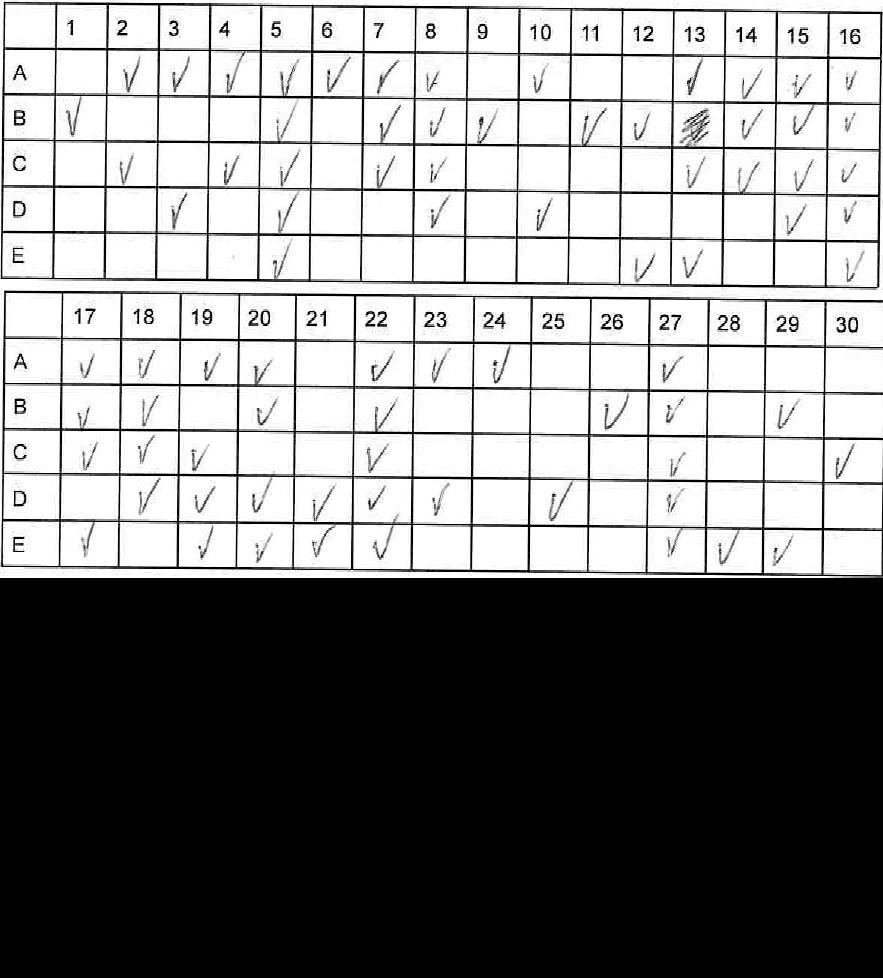 1 2 3 4 5 6 7 8 9 10 11 12 13 14 15 16
A ✓ ✓ ✓ ✓ ✓ ✓ ✓ ✓ ✓ ✓ ✓ ✓
B ✓ ✓ ✓ ✓ ✓ ✓ ✓ ✓ ✓ ✓
C ✓ ✓ ✓ ✓ ✓ ✓ ✓ ✓ ✓
D ✓ ✓ ✓ ✓ ✓ ✓
E ✓ ✓ ✓ ✓
17 18 19 20 21 22 23 24 25 26 27 28 29 30
A ✓ ✓ ✓ ✓ ✓ ✓ ✓ ✓
B ✓ ✓ ✓ ✓ ✓ ✓ ✓
C ✓ ✓ ✓ ✓ ✓ ✓
D ✓ ✓ ✓ ✓ ✓ ✓ ✓ ✓
E ✓ ✓ ✓ ✓ ✓ ✓ ✓ ✓